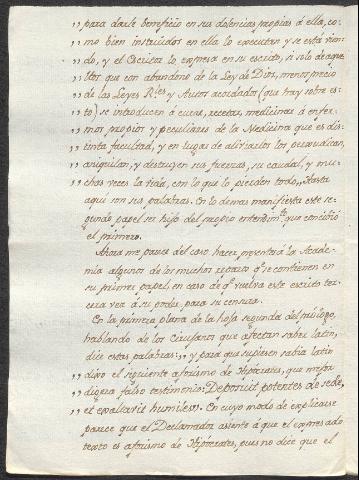 „ para darle beneficio en sus dolencias propias á ella, co-
„ mo bien instruidos en ella lo executan y se está vien-
„ do, y el Escritor lo expresa en su escrito, si solo de aque-
„ llos que con abandono de la Ley de Dios, menosprecio
„ de las Leyes Rles y Autos acordados (que hay sobre es-
„ to) se introducen á curar, recetar, medicinar á enfer-
„ mos propios y peculiares de la Medicina que es dis-
„ tinta facultad, y en lugar de aliviarlos los perjudican,
„ aniquilan, y destruyen sus fuerzas, su caudal, y mu-
„ chas veces la vida, con lo que lo pierden todo„ Hasta
aqui son sus palabras. En lo demas manifiesta este se-
gundo papel ser hijo del propio entendimto que concibió
el primero.
Ahora me parece del caso hacer presente á la Acade-
mia algunos de los muchos reparos qe se contienen en
su primer papel, en caso de qe vuelva este escrito ter-
cera vez á su poder, para su censura.
En la primera plana de la hoja segunda del prólogo,
hablando de los Cirujanos que afectan saber latin,
dice estas palabras: „ y para que supiesen sabia latin
„ dixo el siguiente aforismo de Hipócrates, que mejor
„ dixera falso testimonio: Deposuit potentes de sede,
„ et exaltavit humiles„. En cuyo modo de explicarse
parece que el Declamador asiente á que el expresado
texto es aforismo de Hipócrates, pues no dice que el